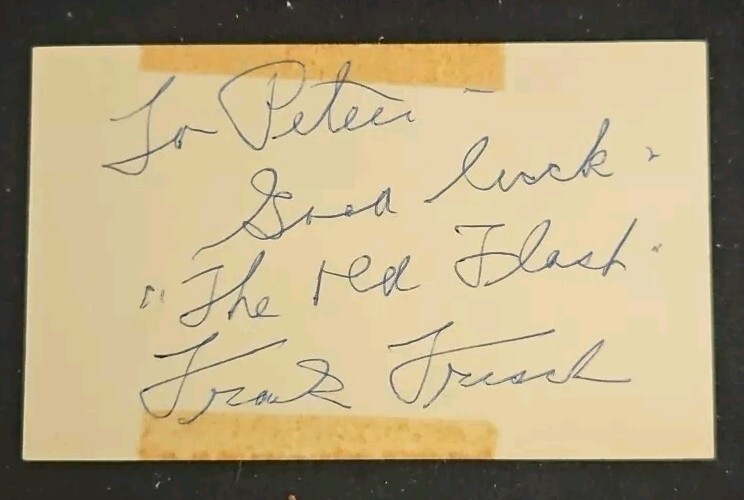 To Peter -
Good luck -
"The Old Flash"
Frank Frisch